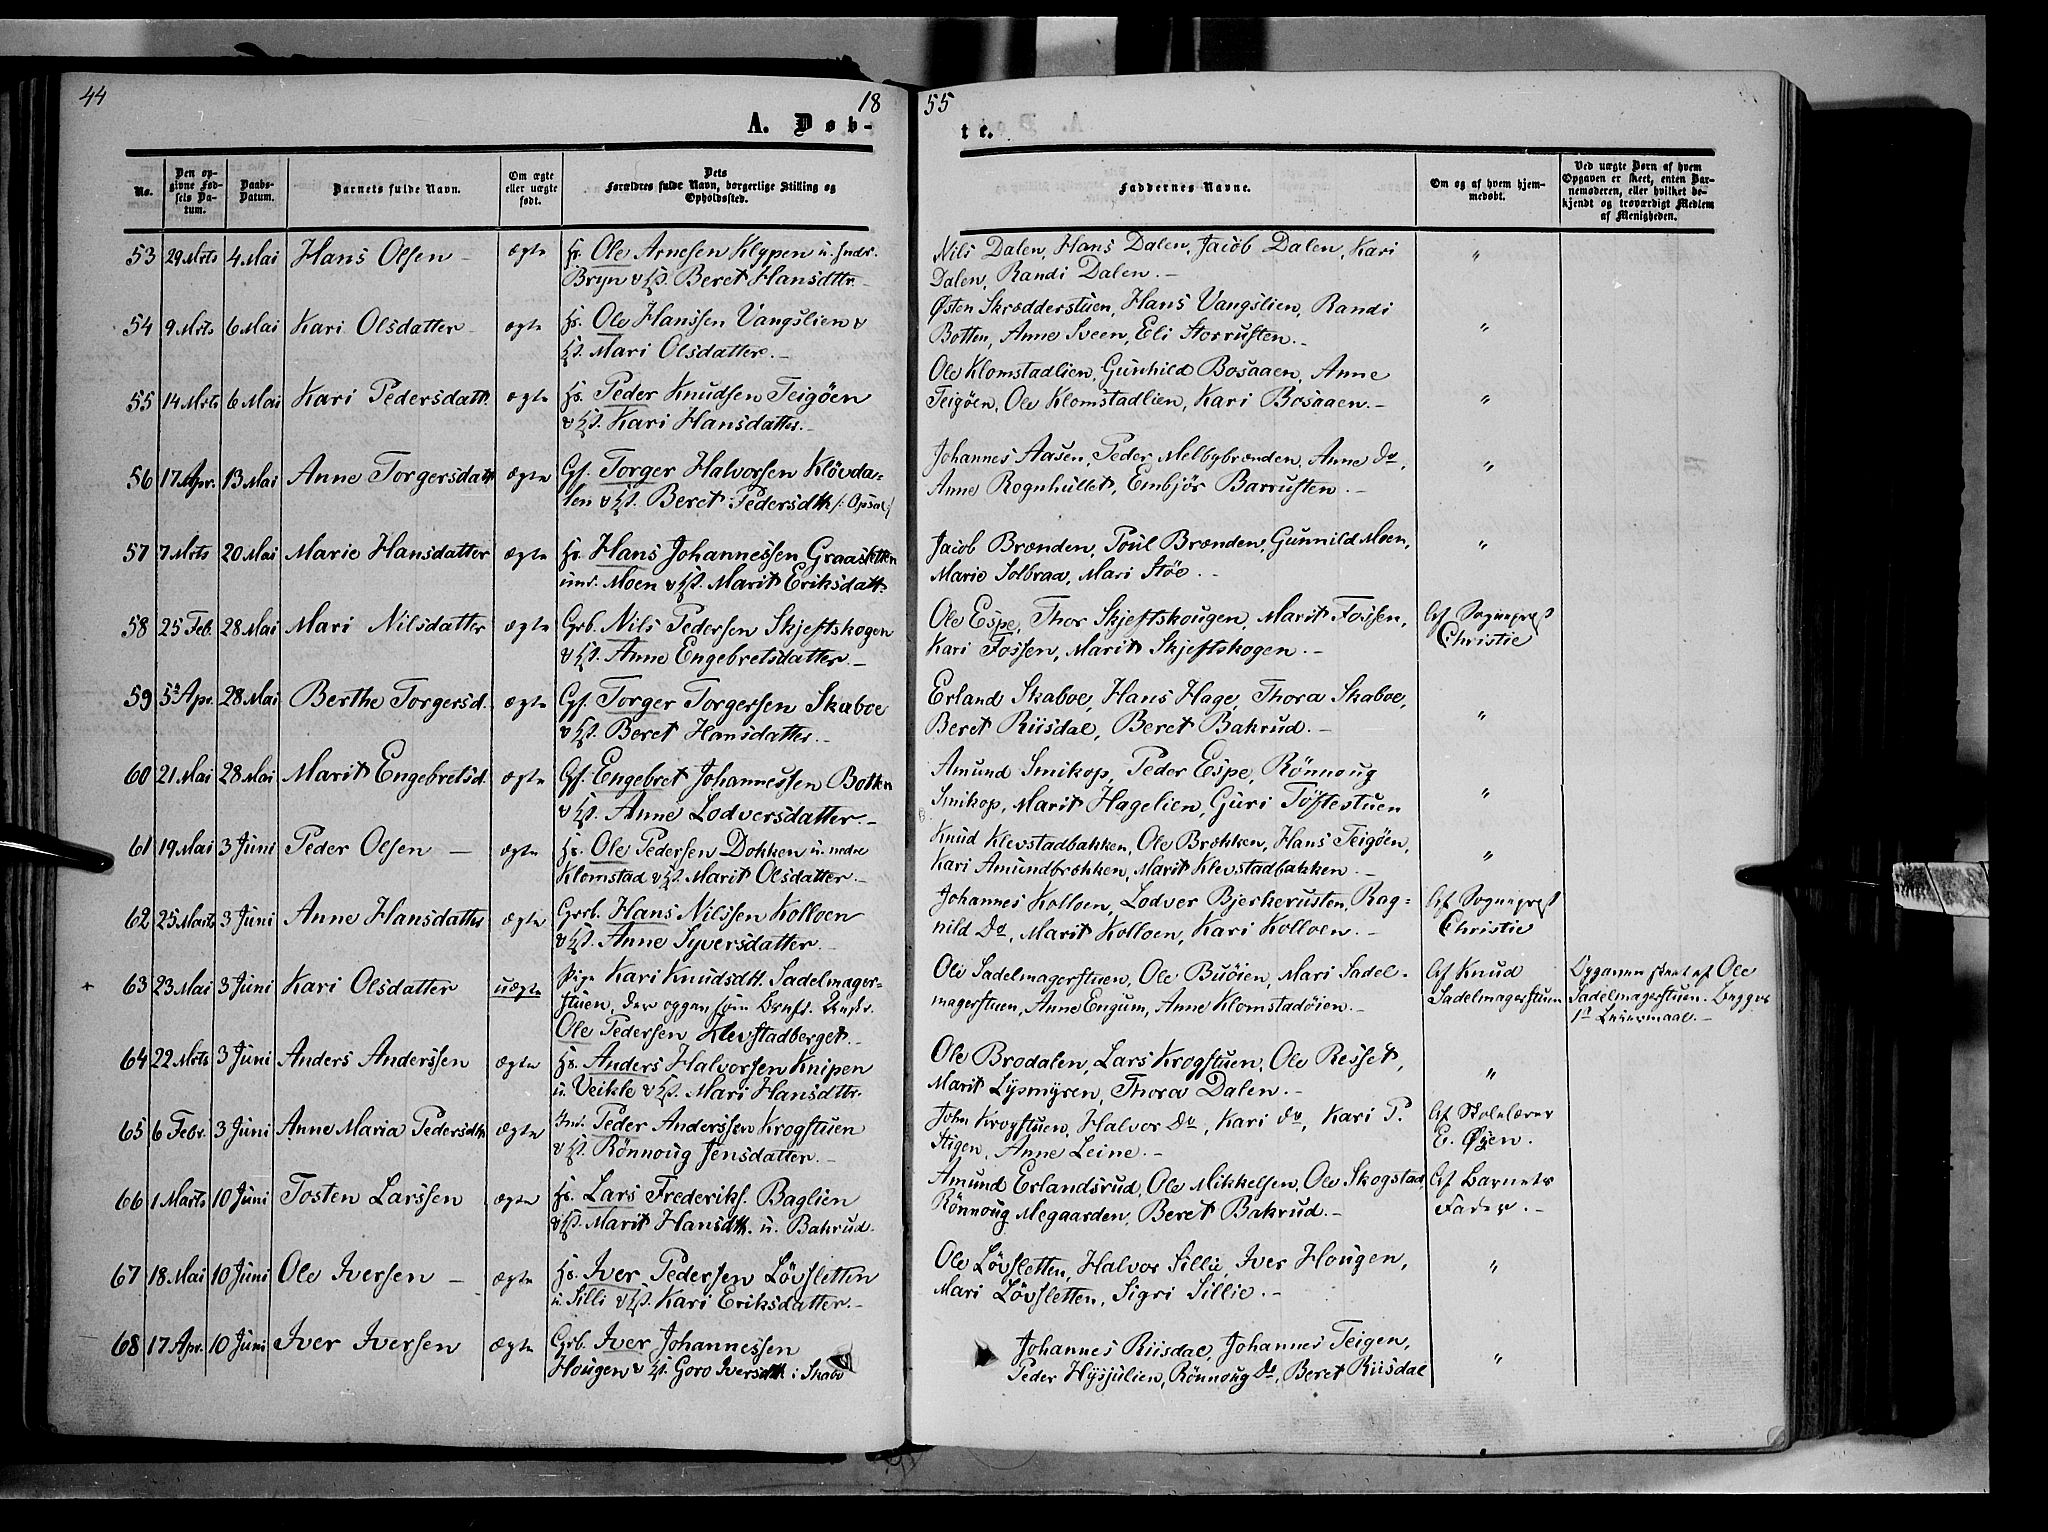 44
18
55
A. Døb-
te.
No.
Den op-
givne Fød-
sels Da-
tum.
Daabs-
Datum.
Barnets fulde Navn.
Om ægte
eller uægte
født.
Dets
Forældres fulde Navn, borgerlige Stilling og
Opholdssted.
Faddernes Navne.
Om og af hvem hjem-
medøbt.
Ved uægte Børn af hvem
Opgaven er skeet, enten Bar-
nemoderen, eller hvilket be-
kjendt og troværdigt Medlem
af Menigheden.
53 29 Mrts 4 Mai Hans Olsen - ægte Hs. Ole Arnesen Klypen u. Indr.
Bryn & Kst. Beret Hansdttr. -
Nils Dalen, Hans Dalen, Jacob Dalen, Kari "
Dalen, Randi Dalen. -
54 9 Mrts 6 Mai Kari Olsdatter - ægte Hs. Ole Hanssen Vangslien &
Kst. Mari Olsdatter. -
Østen Skrædderstuen, Hans Vangslien, Randi "
Botten, Anne Sveen, Eli Storrusten. -
55 14 Mrts 6 Mai Kari Pedersdatt. ægte Hs. Peder Knudsen Teigöen
& Kst. Kari Hansdatter. -
Ole Klomstadlien, Gunhild Bosaaen, Anne "
Teigöen, Ole Klomstadlien, Kari Bosaaen. -
56 17 Apr. 13 Mai Anne Torgersdatt ægte Gf. Torger Halvorsen Klövda-
len & Kst. Beret Pedersdttr /: Opsal :/
Johannes Aasen, Peder Melbybrænden, Anne Do, "
Anne Rognhullet, Embjör Barrusten. -
57 7 Mrts 20 Mai Marie Hansdatter ægte Hs. Hans Johannessen Graasletten
und. Moen & Kst. Marit Eriksdatt.
Jacob Brænden, Poul Brænden, Gunnild Moen, "
Marie Solbraa, Mari Stöe. -
58 25 Feb. 28 Mai Mari Nilsdatter ægte Grb. Nils Pedersen Skjeftskogen
& Kst. Anne Engebretsdatter. -
Ole Espe, Thor Skjeftskougen, Marit Fossen, Af Sognepræst
Kari Fossen, Marit Skjeftskogen. - Christie
59 5te Apr. 28 Mai Berthe Torgersd. ægte Gf. Torger Torgersen Skaboe
& Kst. Beret Hansdatter. -
Erland Skaboe, Hans Hage, Thora Skaboe, "
Beret Riisdal, Beret Bakrud. -
60 21 Mai 28 Mai Marit Engebretsd. ægte Gf. Engebret Johannessen Botten
& Kst. Anne Lodversdatter. -
Amund Smikop, Peder Espe, Rönnoug "
Smikop, Marit Hagelien, Guri Töftestuen
61 19 Mai 3 Juni Peder Olsen - ægte Hs. Ole Pedersen Dokken u. nedre
Klomstad & Kst. Marit Olsdatter. -
Knud Klevstadbakken, Ole Brækken, Hans Teigöen, "
Kari Amundbrækken, Marit Klevstadbakken. -
62 25 Marts 3 Juni Anne Hansdatter ægte Grb. Hans Nilssen Kolloen
& Kst. Anne Syversdatter. -
Johannes Kolloen, Lodver Bjerkerusten, Rag- Af Sognepræst
nild Do, Marit Kolloen, Kari Kolloen. - Christie
+ 63 23 Mai 3 Juni Kari Olsdatter uægte Pige Kari Knudsdtt. Sadelmager-
stuen, der opgav som Barnef.
Ole Pedersen Klevstadberget. -
Ole Sadelmagerstuen, Ole Buöien, Mari Sadel- Af Knud Opgaven skeet af Ole
magerstuen, Anne Engum, Anne Klomstadöien. - Sadelmagerstuen Sadelmagerstuen. Begges
1ste Leiermaal. -
64 22 Mrts 3 Juni Anders Anderssen ægte Hs. Anders Halvorsen Knipen
u. Veikle & Kst. Mari Hansdttr.
Ole Brodalen, Lars Krogstuen, Ole Resset, "
Marit Lysmyren, Thora Dalen. -
65 6 Febr. 3 Juni Anne Maria Pedersdtt ægte Ind. Peder Anderssen Krogstuen
& Kst. Rönnoug Jensdatter. -
John Krogstuen, Halvor Do, Kari Do, Kari P. Af Skolelærer
Stigen, Anne Leine. - E. Øyen.
66 1 Marts 10 Juni Tosten Larssen ægte Hs. Lars Frederiks. Baglien
& Kst. Marit Hansdtt. u. Bakrud.
Amund Erlandsrud, Ole Mikkelsen, Ole Skogstad Af Barnets
Rönnoug Megaarden, Beret Bakrud. - Fader. -
67 18 Mai 10 Juni Ole Iversen - ægte Hs. Iver Pedersen Lövsletten
u. Silli & Kst. Kari Eriksdatter. -
Ole Lövsletten, Halvor Sillie, Iver Hougen, "
Mari Lövsletten, Sigri Sillie. -
68 17 Apr. 10 Juni Iver Iversen ægte Grb. Iver Johannessen
Hougen & Kst. Goro Iversdtt i Skabo
Johannes Riisdal, Johannes Teigen, "
Peder Hysjulien, Rönnoug Do, Beret Riisdal